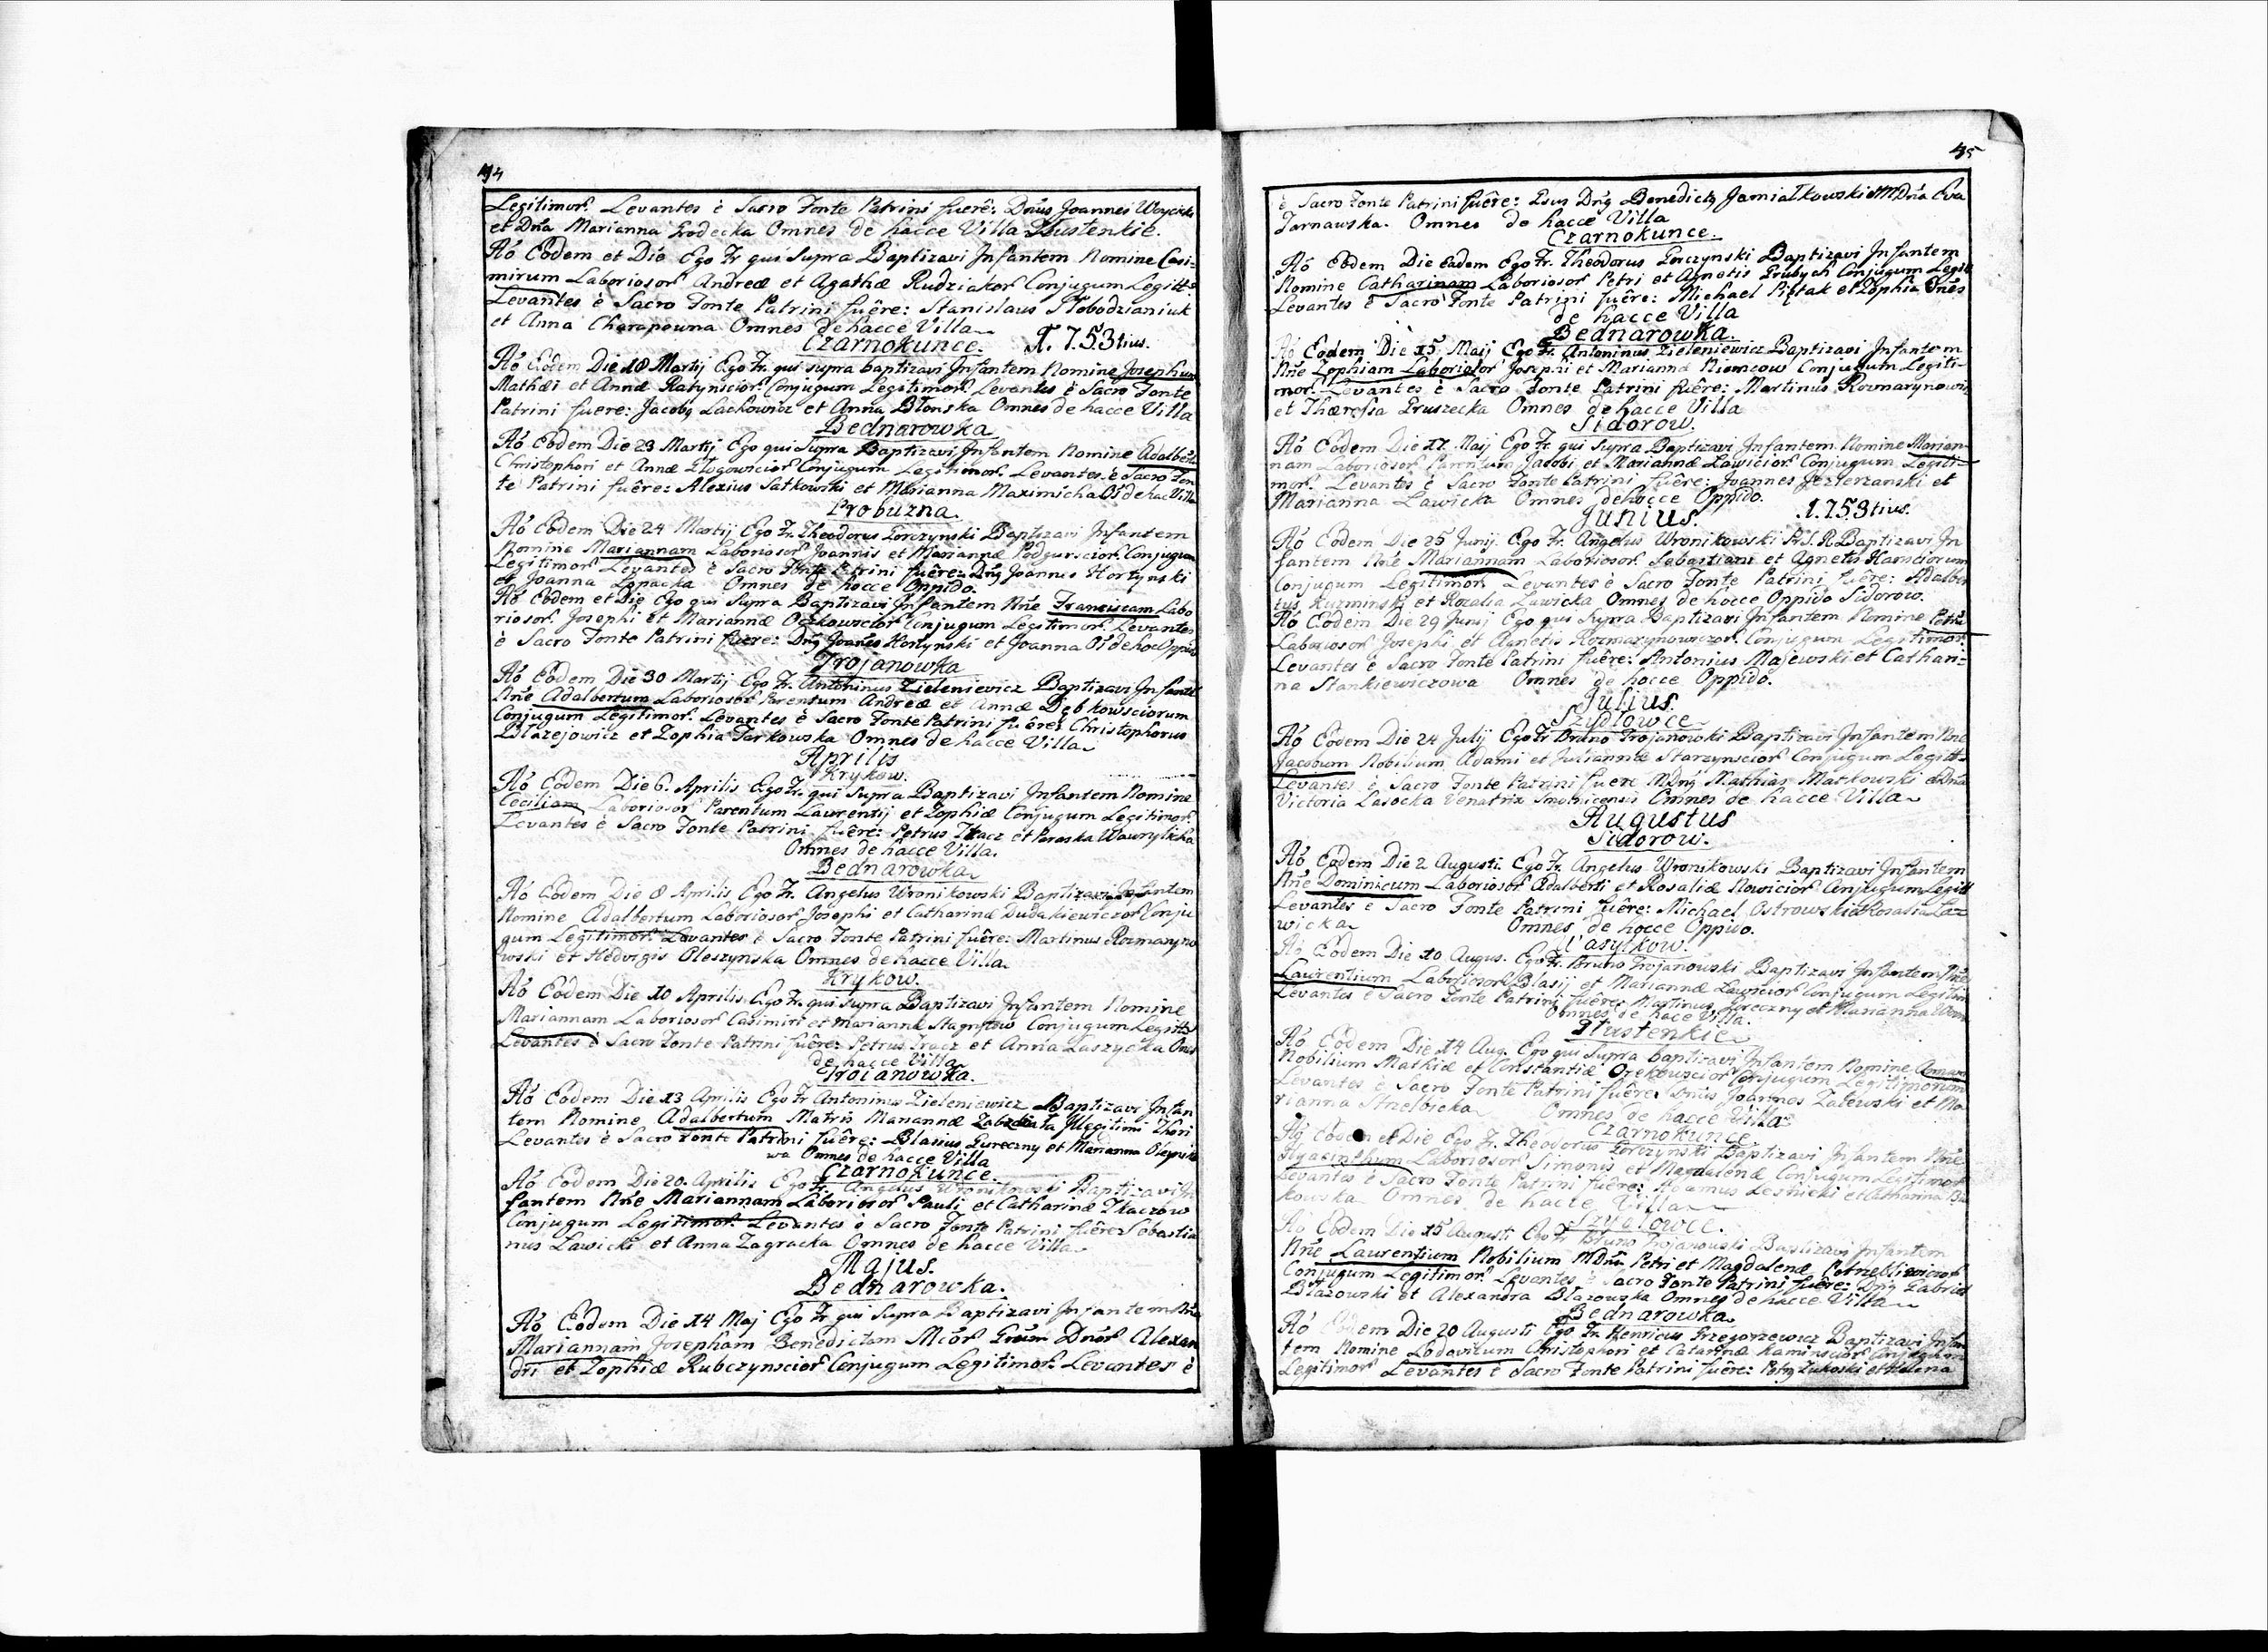 44
Legitimor. Levantes è Sacro Fonte Patrini fuêre: Dnus Joannes Woycicki
et Dna Marianna Grodecka Omnes de hacce Villa Tłustenkie.
Aó Eodem et Die Ego Fr qui Supra Baptizavi Infantem Nomine Casi-
mirum Laboriosor Andreæ et Agathæ Rudziakor Conjugum Legitt:
Levantes è Sacro Fonte Patrini fuêre: Stanislaus Słobodzianiuk
et Anna Charapowna Omnes de hacce Villa
Czarnokunce. 1.7.53tius.
Aó Eodem Die 18 Martij Ego Fr. qui supra baptizavi Infantem Nomine Josephum
Mathæi et Annæ Ratynscior. Conjugum Legitimor. Levantes è Sacro Fonte
Patrini fuere: Jacobg Lachowicz et Anna Błonska Omnes de hacce Villa
Bednarowka
Aó Eodem Die 23 Martij Ego qui Supra Baptizavi Infantem Nomine Adalber
Christophori et Annæ Głogowicior. Conjugum Legitimor. Levantes è Sacro Fon
te Patrini fuêre: Alexius Satkowski et Marianna Maximicha Os de hac Villa
Probuzna.
Aó Eodem Die 24 Martij Ego Fr. Theodorus Gorczynski Baptizavi Infantem
Nomine Mariannam Laboriosor Joannis et Mariannæ Podgurscior. Conjugum
Legitimor Levantes è Sacro Fonte Patrini fuêre: Dng Joannes Hortynski
et Joanna Lopacka Omnes de hocce Oppido.
Aó Eodem et Die Ego qui Supra Baptizavi Infantem Nne Franciscam Labo
riosor Josephi et Mariannæ Oczkowscior Conjugum Legitimor. Levantes
è Sacro Fonte Patrini fuere: Dng Joanes Hortynski et Joanna Os de hoc Oppido
Trojanowka
Aó Eodem Die 30 Martij Ego Fr. Antoninus Zieleniewicz Baptizavi Infante
Nne Adalbertum Laboriosor Parentum Andreæ et Annæ Dębkowsciorum
Conjugum Legitimor. Levantes è Sacro Fonte Patrini fuêre: Christophorus
Błazejowicz et Zophia Tarkowska Omnes de hacce Villa
Aprilis
Krykow.
Aó Eodem Die 6. Aprilis Ego Fr. qui Supra Baptizavi Infantem Nomine
Ceciliam Laboriosor Parentum Laurentij et Zophiæ Conjugum Legitimor.
Levantes è Sacro Fonte Patrini fuêre: Petrus Tkacz et Paraska Wawrylicha
Omnes de hacce Villa.
Bednarowka
Aó Eodem Die 8 Aprilis Ego Fr. Angelus Wronikowski Baptizavi Infantem
Nomine Adalbertum Laboriosor Josephi et Catharinæ Dudakiewiczor Conju
gum Legitimor. Levantes è Sacro Fonte Patrini fuêre: Martinus Rozmaryno
wski et Hedvigis Oleszynska Omnes de hacce Villa
Krykow.
Aó Eodem Die 10 Aprilis Ego Fr. qui Supra Baptizavi Infantem Nomine
Mariannam Laboriosor Casimiri et Mariannæ Conjugum Legitt
Levantes è Sacro Fonte Patrini fuêre: Petrus Tracz et Anna Łaszycka Ones
de hacce Villa
Troianowka.
Aó Eodem Die 13 Aprilis Ego Fr Antoninus Zieleniewicz Baptizavi Infan
tem Nomine Adalbertum Matris Mariannæ Illegitimi Thori
Levantes è Sacro Fonte Patrini fuêre: Blasius Gureczny et Marianna
wa Omnes de hacce Villa
Czarnokunce.
Aó Eodem Die 20. Aprilis Ego Fr. Angelus Wronikowski Baptizavi In
fantem Nne Mariannam Laboriosor Pauli et Catharinæ Tkaczow
Conjugum Legitimor. Levantes è Sacro Fonte Patrini fuêre Sebastia
nus Ławicki et Anna Zagracka Omnes de hacce Villa
Majus.
Bednarowka.
Aó Eodem Die 14 Maj Ego Fr qui Supra Baptizavi Infantem Nne
Mariannam Josepham Benedictam Mcor Grum Dnor Alexan
dri et Zophiæ Rubczynscior Conjugum Legitimor. Levantes è
45
è Sacro Fonte Patrini fuêre: Dng Benedictg Jamiałkowski et MDna Eva
Tarnawska. Omnes de hacce Villa
Czarnokunce.
Aó Eodem Die Eadem Ego Fr. Theodorus Gorczynski Baptizavi Infantem
Nomine Catharinam Laboriosor Petri et Agnetis Grubych Conjugum Legitt
Levantes è Sacro Fonte Patrini fuêre: Michael Piętak et Zophia Ones
de hacce Villa
Bednarowka.
Aó Eodem Die 15 Maij Ego Fr. Antoninus Zieleniewicz Baptizavi Infantem
Nne Zophiam Laboriosor Josephi et Mariannæ Niemcow Conjugum Legiti-
mor. Levantes è Sacro Fonte Patrini fuêre: Martinus Rozmarynowicz
et Theressa Gruszecka Omnes de hacce Villa
Sidorow.
Aó Eodem Die 17. Maij Ego Fr. qui Supra Baptizavi Infantem Nomine Marian-
nam Laboriosor Parentum Jacobi et Mariannæ Ławicior Conjugum Legiti-
mor. Levantes è Sacro Fonte Patrini fuêre: Joannes Jezierzanski et
Marianna Ławicka Omnes de hocce Oppido.
Junius. 1.753tius.
Aó Eodem Die 25 Junij. Ego Fr. Angelus Wronikowski Baptizavi In
fantem Nne Mariannam Laboriosor. Sebastiani et Agnetis
Conjugum Legitimor. Levantes è Sacro Fonte Patrini fuêre: Adalber
tus Kuzminski et Rozalia Ławicka Omnes de hocce Oppido Sidorow.
Aó Eodem Die 29 Junij Ego qui Supra Baptizavi Infantem Nomine Petru
Laboriosor Josephi et Agnetis Rozmarynowiczor. Conjugum Legitimor.
Levantes è Sacro Fonte Patrini fuêre: Antonius Majewski et Cathari-
na Stankiewiczowa Omnes de hocce Oppido.
Julius.
Szydłowce
Aó Eodem Die 24 Julij Ego Fr Bruno Trojanowski Baptizavi Infantem Nne
Jacobum Nobilium Adami et Juliannæ Starzynscior Conjugum Legitt:
Levantes è Sacro Fonte Patrini fuere MDng Mathias Matkowski et Dna
Victoria Lasocka Venatrix Omnes de hacce Villa
Augustus
Sidorow.
Aó Eodem Die 2 Augusti. Ego Fr. Angelus Wronikowski Baptizavi Infantem
Nne Dominicum Laboriosor Adalberti et Rosaliæ Nowicior Conjugum Legitt
Levantes è Sacro Fonte Patrini fuêre: Michael Ostrowski et Rosalia Ła-
wicka Omnes de hocce Oppido.
Wasylkow.
Aó Eodem Die 10 Augus. Ego Fr. Bruno Trojanowski Baptizavi Infantem Nne
Laurentium Laboriosor Blasij et Mariannæ Ławicior Conjugum Legitim
Levantes è Sacro Fonte Patrini fuêre: Martinus Goreczny et Marianna
Omnes de hacce Villa.
Tłustenkie
Aó Eodem Die 14 Aug. Ego qui Supra baptizavi Infantem Nomine
Nobilium Mathiæ et Constantiæ Orekowscior Conjugum Legitimorum
Levantes è Sacro Fonte Patrini fuêre: Dnus Joannes Zalewski et Ma
rianna Strzelbicka Omnes de hacce Villa
Czarnokunce.
Aó Eodem et Die Ego Fr. Theodorus Gorczynski Baptizavi Infantem Nne
Hyacinthum Laboriosor Simonis et Magdalenæ Conjugum Legitimor
Levantes è Sacro Fonte Patrini fuêre: Adamus Lesnicki et Catharina
kowska Omnes de hacce Villa
Szydłowce.
Aó Eodem Die 15 Augusti Ego Fr Bruno Trojanowski Baptizavi Infantem
Nne Laurentium Nobilium MDnu Petri et Magdalenæ
Conjugum Legitimor. Levantes è Sacro Fonte Patrini fuêre: Dng Gabriel
Błazowski et Alexandra Błazowska Omnes de hacce Villa
Bednarowka
Aó Eodem Die 20 Augusti Ego Fr. Henricus Grzegorzewicz Baptizavi Infan
tem Nomine Lodavicum Christophori et Catarinæ Kaminscior Conjugum
Legitimor Levantes è Sacro Fonte Patrini fuêre: Petrg Zukoski et Helena